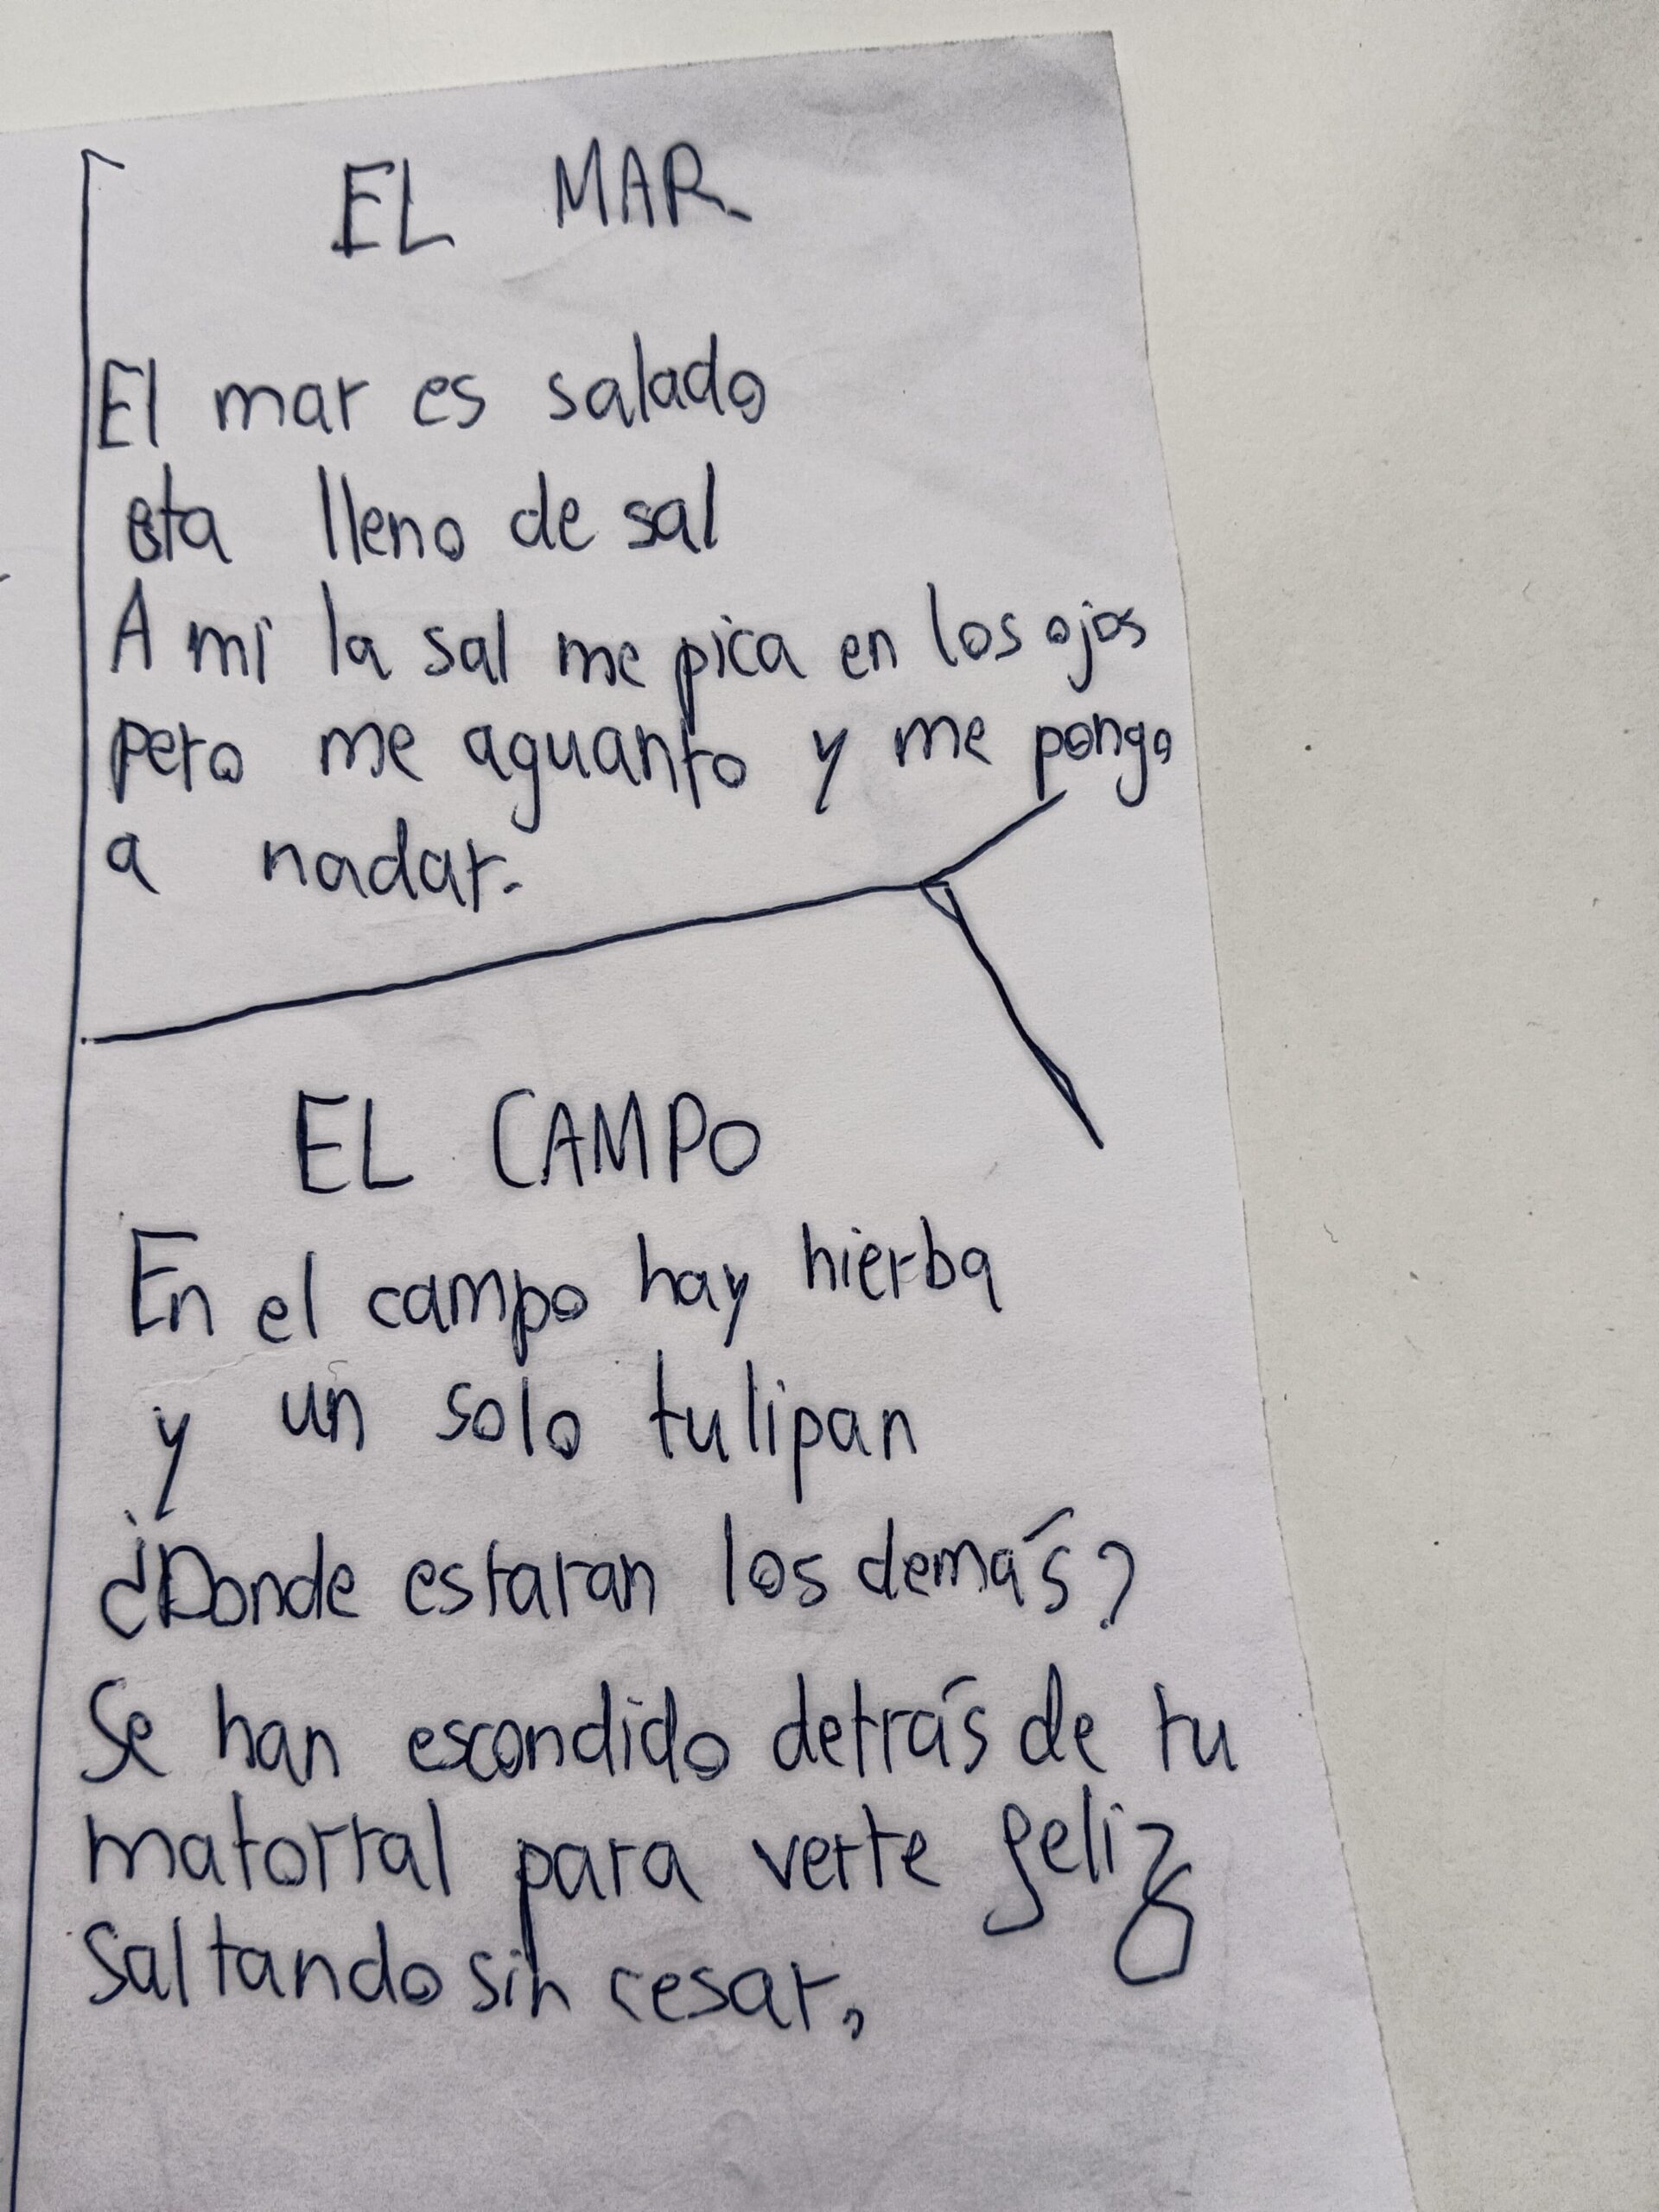 EL MAR
El mar es salado
esta lleno de sal
A mi la sal me pica en los ojos
pero me aguanto y me pongo
a nadar.
EL CAMPO
En el campo hay hierba
y un solo tulipan
¿Donde estaran los demás?
Se han escondido detrás de tu
matorral para verte feliz
Saltando sin cesar,